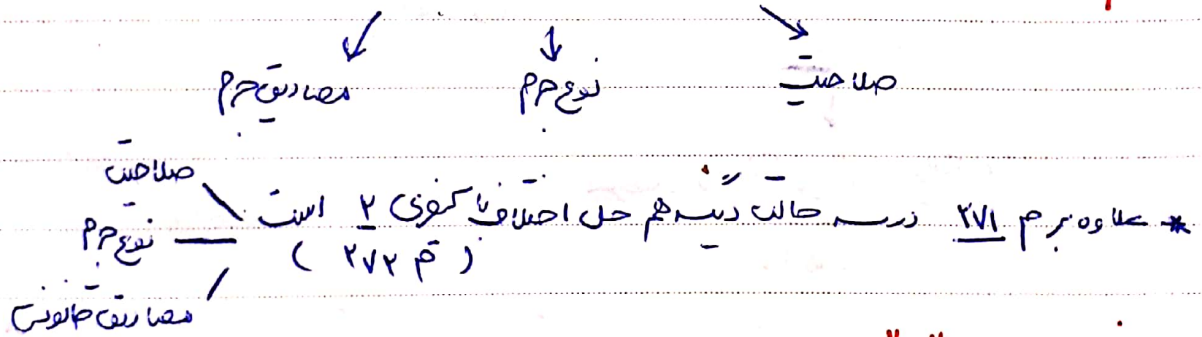 صلاحیت نوع جرم مصادیق جرم
* علاوه بر م ۲۷۱ در سه حالت دیگر هم حل اختلاف با کیفری ۲ است
صلاحیت
نوع جرم
( م ۲۷۲ )
مصادیق قانونی